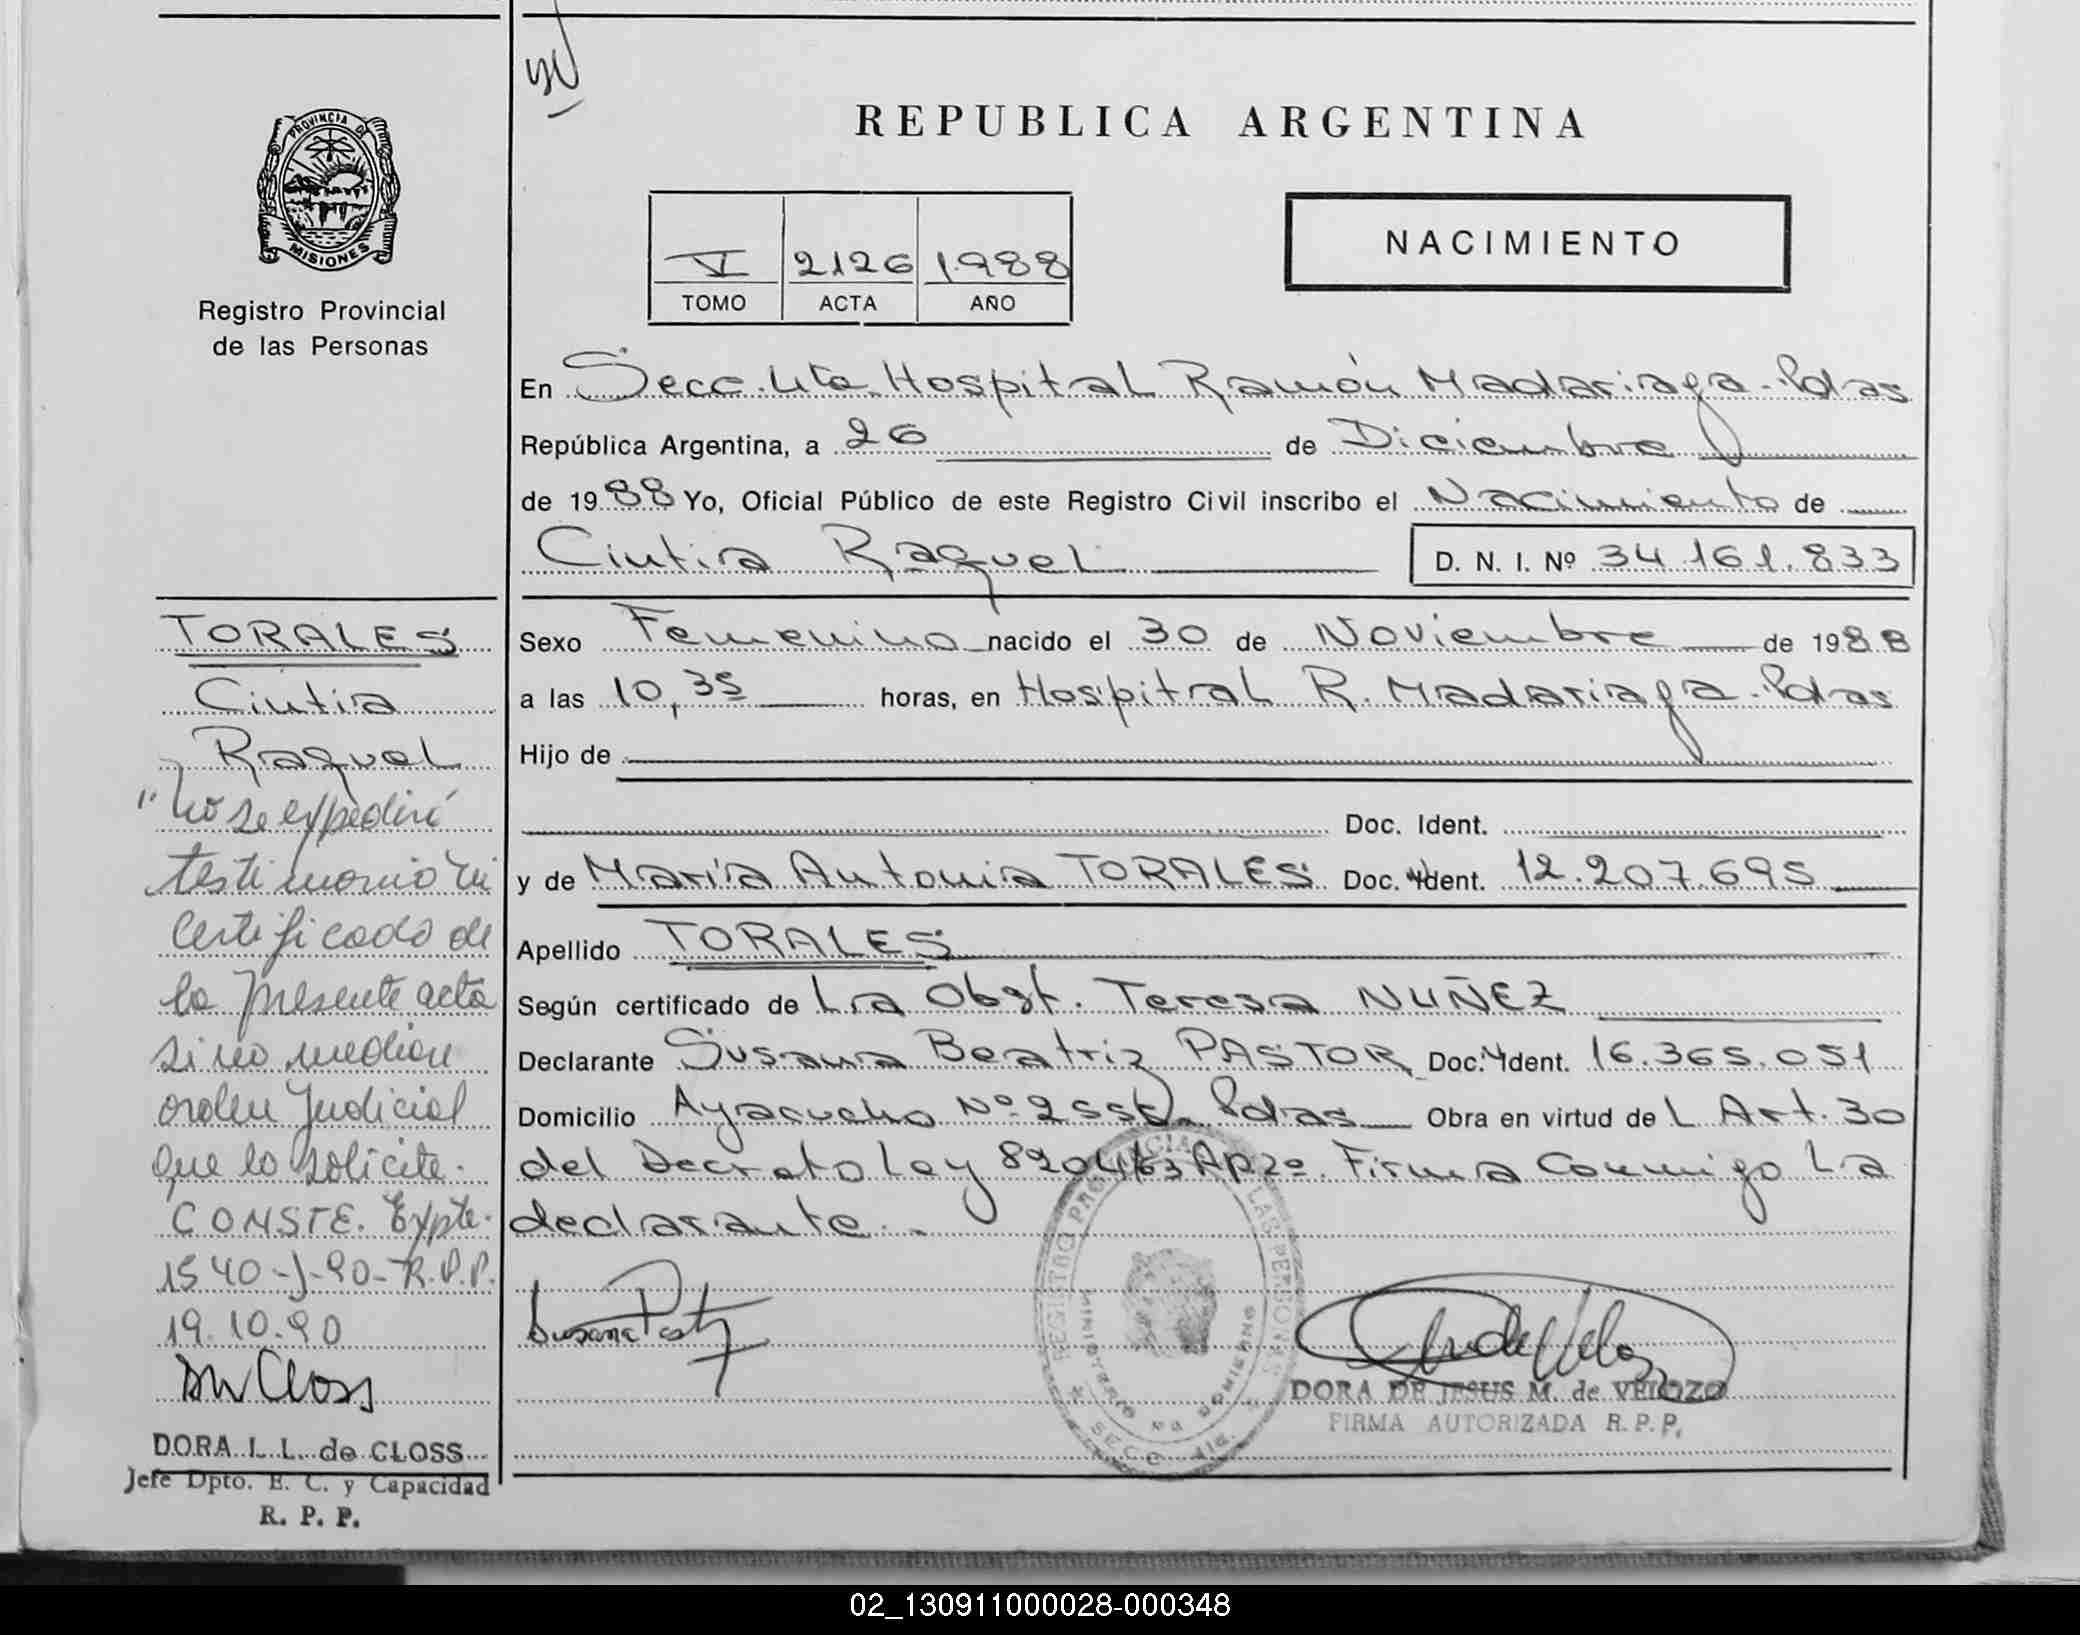 REPUBLICA ARGENTINA
PROVINCIA DE
MISIONES
Registro Provincial
de las Personas
V 2126 1988
TOMO ACTA AÑO
NACIMIENTO
En Secc. 4ta. Hospital Ramón Madariaga - Pdas
República Argentina, a 26 de Diciembre
de 1988 Yo, Oficial Público de este Registro Civil inscribo el Nacimiento de
Cintia Raquel D. N. I. Nº 34.161.833
Sexo Femenino nacido el 30 de Noviembre de 1988
a las 10,35 horas, en Hospital R. Madariaga - Pdas
Hijo de
Doc. Ident.
y de María Antonia TORALES Doc. Ident. 12.207.695
Apellido TORALES
Según certificado de La Obst. Teresa NUÑEZ
Declarante Susana Beatriz PASTOR Doc. Ident. 16.365.051
Domicilio Ayacucho Nº 2550 Pdas Obra en virtud de L Art. 30
del Decreto Ley 8204/63 Ap 2º. Firma Conmigo La
declarante.
TORALES
Cintia
Raquel
"No se expedirá
testimonio ni
certificado de
la presente acta
si no mediare
orden judicial
que lo solicite.
CONSTE. Expte.
1540-J-90-R.P.P.
19.10.90
DORA L. L. de CLOSS
Jefe Dpto. E. C. y Capacidad
R. P. P.
REGISTRO PROVINCIAL DE LAS PERSONAS
MINISTERIO DE GOBIERNO
SECC. 4ta.
DORA DE JESUS M. de VELOZO
FIRMA AUTORIZADA R. P. P.
02_130911000028-000348